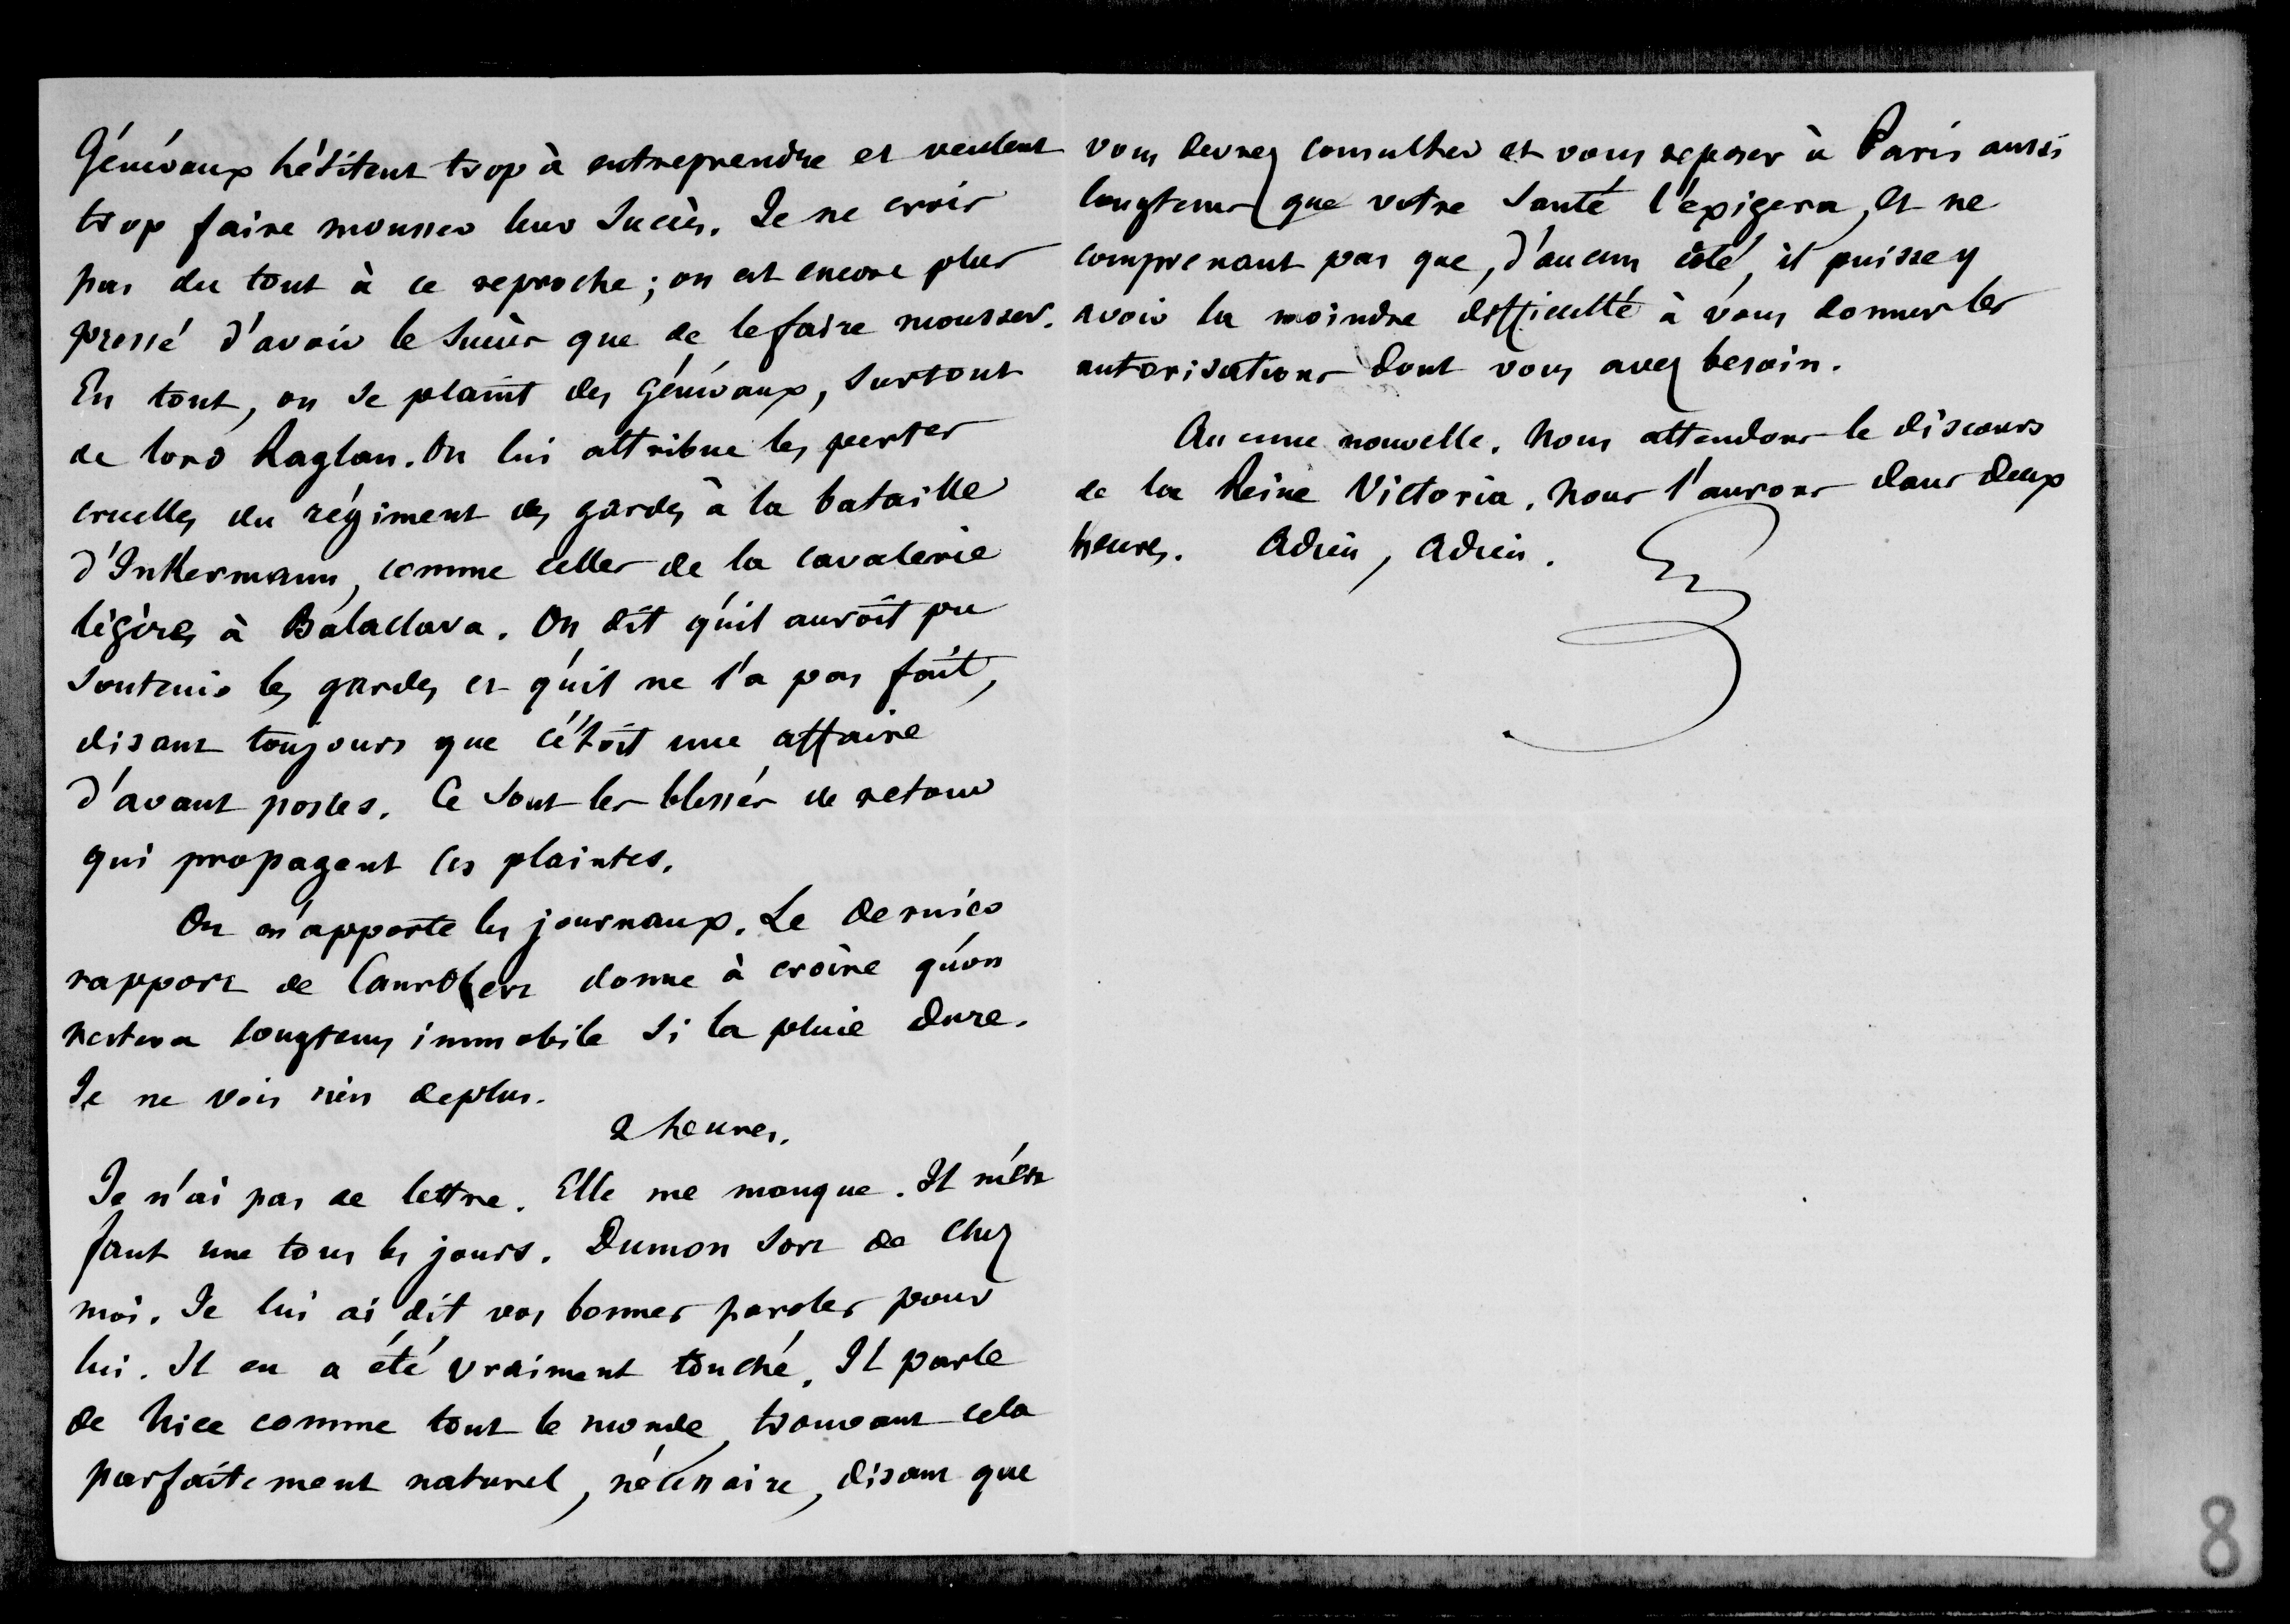 Généraux hésitent trop à entreprendre et veulent
trop faire mousser leur succès. Je ne crois
pas du tout à ce reproche ; on est encore plus
pressé d'avoir le succès que de le faire mousser.
En tout, on se plaint des généraux, surtout
de lord Raglan. On lui attribue les pertes
cruelles du régiment des gardes à la bataille
d'Inkermann, comme celles de la cavalerie
légère, à Balaclava. On dit qu'il auroit pu
soutenir les gardes et qu'il ne l'a pas fait,
disant toujours que c'étoit une affaire
d'avant postes. Ce sont les blessés de retour
qui propagent ces plaintes.
On m'apporte les journaux. Le dernier
rapport de Canrobert donne à croire qu'on
restera longtems immobile si la pluie dure.
Je ne vois rien de plus.
2 heures.
Je n'ai pas de lettre. Elle me manque. Il m'en
faut une tous les jours. Dumon sort de chez
moi. Je lui ai dit vos bonnes paroles pour
lui. Il en a été vraiment touché. Il parle
de Nice comme tout le monde, trouvant cela
parfaitement naturel, nécessaire, disant que
vous devrez consulter et vous reposer à Paris aussi
longtems que votre santé l'exigera, et ne
comprenant pas que, d'aucun côté, il puisse y
avoir la moindre difficulté à vous donner les
autorisations dont vous avez besoin.
Aucune nouvelle. Nous attendons le discours
de la Reine Victoria. Nous l'aurons dans deux
heures. Adieu, Adieu.
8